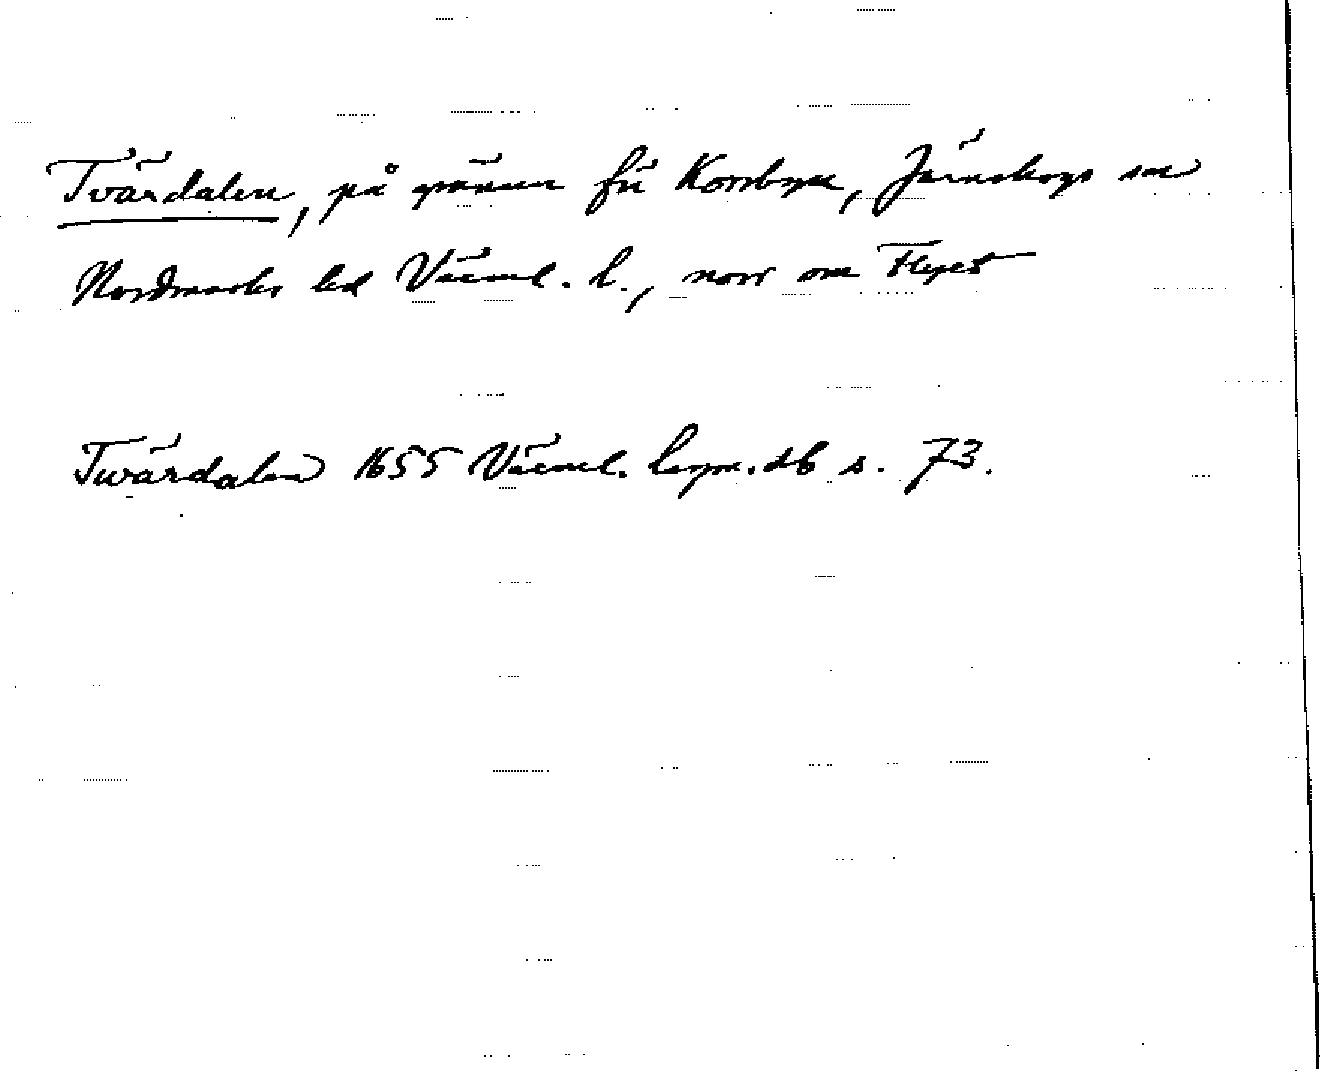 Tvärdalen, på gränsen fr Korsbyn, Järnskogs sn
Nordmarks hd Värml. l., norr om Flyet
Twärdalen 1655 Värml. lagm.db s. 73.